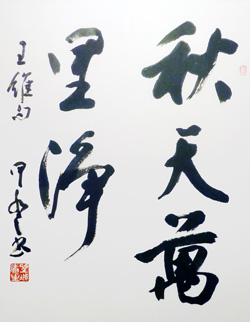 秋天萬
里淨
王維句